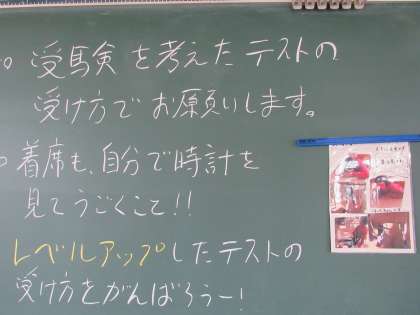 ○ 受験を考えたテストの
受け方でお願いします。
○ 着席も、自分で時計を
見てうごくこと!!
レベルアップしたテストの
受け方をがんばろうー!